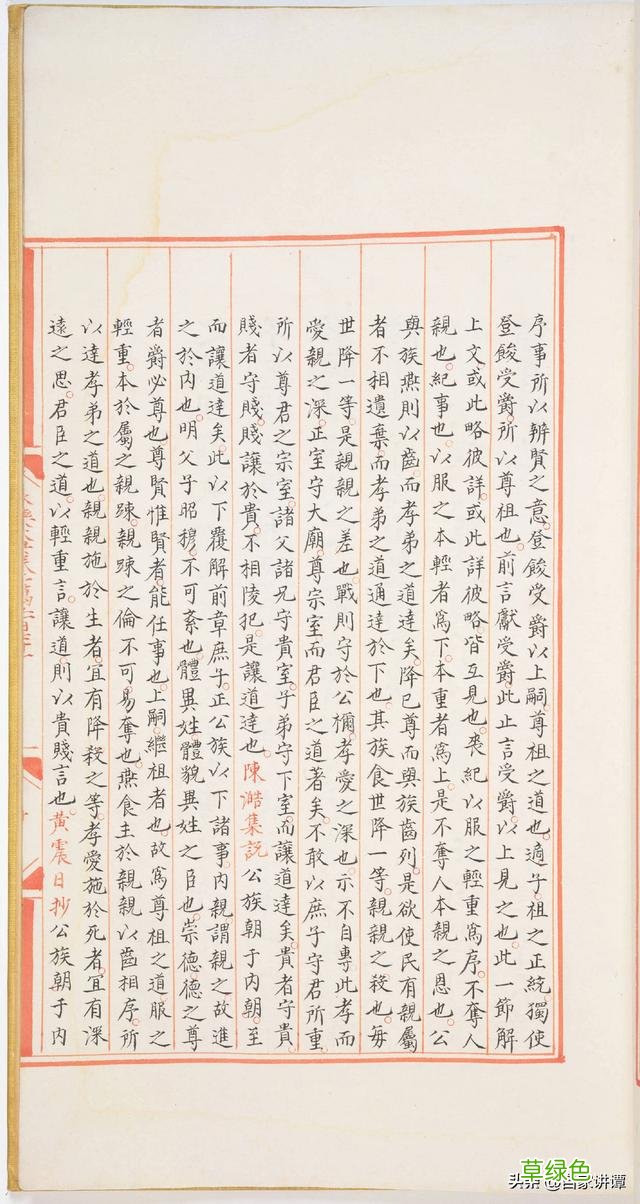 序事所以辨賢之意登餕受爵以上嗣尊祖之道也適子祖之正統獨使
登餕受爵所以尊祖也前言獻受爵此止言受爵以上見之也此一節解
上文或此略彼詳或此詳彼略皆互見也喪紀以服之輕重爲序不奪人
親也紀事也以服之本輕者爲下本重者爲上是不奪人本親之恩也公
與族燕則以齒而孝弟之道達矣降已尊而與族齒列是欲使民有親屬
者不相遺棄而孝弟之道通達於下也其族食世降一等親親之殺也每
世降一等是親親之差也戰則守於公禰孝愛之深也示不自專此孝而
愛親之深正室守大廟尊宗室而君臣之道著矣不敢以庶子守君所重
所以尊君之宗室諸父諸兄守貴室子弟守下室而讓道達矣貴者守貴
賤者守賤賤讓於貴不相陵犯是讓道達也陳澔集説公族朝于内朝至
而讓道達矣此以下覆解前章庶子正公族以下諸事内親謂親之故進
之於内也明父子昭穆不可紊也體異姓體貌異姓之臣也崇德德之尊
者爵必尊也尊賢惟賢者能任事也上嗣繼祖者也故爲尊祖之道服之
輕重本於屬之親踈親踈之倫不可易奪也燕食主於親親以齒相序所
以達孝弟之道也親親施於生者宜有降殺之等孝愛施於死者宜有深
遠之思君臣之道以輕重言讓道則以貴賤言也黄震日抄公族朝于内
草绿色
头条@吕家讲谭